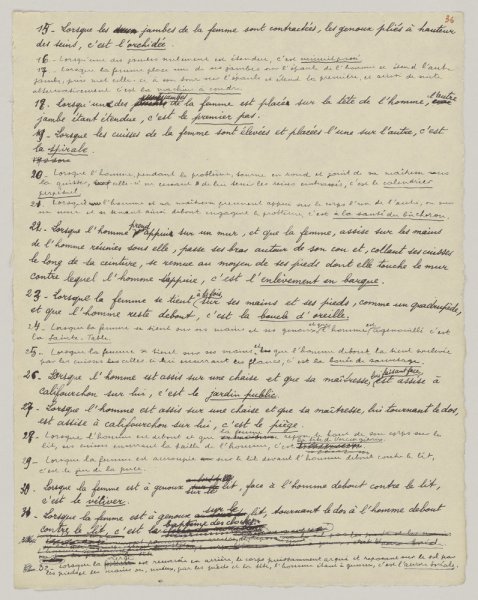 36
15.- Lorsque les jambes de la femme sont contractés, les genoux pliés à hauteur
des seins, c'est l'orchidée.
16.- Lorsqu'une des jambes seulement est étendue, c'est
17.- Lorsque la femme place une de ses jambes sur l'épaule de l'homme et étend l'autre
jambe, puis met celle-ci à son tour sur l'épaule et étend la première, et ainsi de suite
alternativement c'est la machine à coudre.
18.- Lorsqu'une des jambes de la femme est placée sur la tête de l'homme, l'autre
jambe étant étendue, c'est le premier pas.
19.- Lorsque les cuisses de la femme sont élevées et placées l'une sur l'autre, c'est
la spirale.
20.- Lorsque l'homme, pendant le problème, tourne en rond et jouit de sa maîtresse sous
la cuisse, celle-ci ne cessant de lui tenir les reins embrassés, c'est le calendrier
perpétuel.
21.- Lorsque l'homme et sa maîtresse prennent appui sur le corps l'un de l'autre, ou sur
un mur et se tenant ainsi debout engagent le problème, c'est à la santé du bûcheron.
22.- Lorsque l'homme prend appui sur un mur, et que la femme, assise sur les mains
de l'homme réunies sous elle, passe ses bras autour de son cou et, collant ses cuisses
le long de sa ceinture, se remue au moyen de ses pieds dont elle touche le mur
contre lequel l'homme s'appuie, c'est l'enlèvement en barque.
23.- Lorsque la femme se tient à la fois sur ses mains et ses pieds, comme un quadrupède,
et que l'homme reste debout, c'est la boucle d'oreille.
24.- Lorsque la femme se tient sur ses mains et ses genoux, et que l'homme est agenouillé c'est
la Sainte-Table.
25.- Lorsque la femme se tient sur ses mains, et que l'homme debout la tient soulevée
par les cuisses, celles-ci lui enserrant les flancs, c'est la bouée de sauvetage.
26.- Lorsque l'homme est assis sur une chaise et que sa maîtresse, lui faisant face, est assise à
califourchon sur lui, c'est le jardin public.
27.- Lorsque l'homme est assis sur une chaise et que sa maîtresse, lui tournant le dos,
est assise à califourchon sur lui, c'est le piège.
28.- Lorsque l'homme est debout et que la femme repose le haut de son corps sur le
lit, ses cuisses enserrant la taille de l'homme, c'est
29.- Lorsque la femme est accroupie sur le lit devant l'homme debout contre le lit,
c'est le jeu de la puce.
30.- Lorsque la femme est à genoux sur le lit, face à l'homme debout contre le lit,
c'est le vétiver.
31.- Lorsque la femme est à genoux sur le lit, tournant le dos à l'homme debout
contre le lit, c'est le baptême des cloches.
32.- Lorsque la vierge est renversée en arrière, le corps puissamment arqué et reposant sur le sol par
les pieds et les mains ou, mieux, par les pieds et la tête, l'homme étant à genoux, c'est l'aurore boréale.